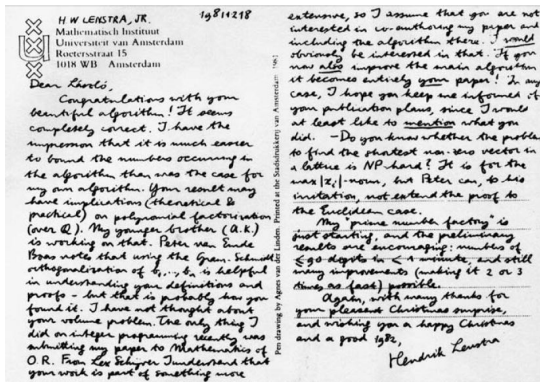 H W LENSTRA, JR. 19811218
Mathematisch Instituut
Universiteit van Amsterdam
Roetersstraat 15
1018 WB Amsterdam
Dear László,
Congratulations with your
beautiful algorithm! It seems
completely correct. I have the
impression that it is much easier
to bound the numbers occurring in
the algorithm than was the case for
my own algorithm. Your result may
have implications (theoretical &
practical) on polynomial factorization
(over Q). My younger brother (A.K.)
is working on that. Peter van Emde
Boas notes that using the Gram-Schmidt
orthogonalization of b₁,..., bₙ is helpful
in understanding your definitions and
proofs - but that is probably how you
found it. I have not thought about
your volume problem. The only thing I
did on integer programming recently was
submitting my paper to Mathematics of
O.R. From Lex Schrijver I understand that
your work is part of something more
Pen drawing by Agnes van der Linden. Printed at the Stadsdrukkerij van Amsterdam 1981
extensive, so I assume that you are not
interested in co-authoring my paper and
including the algorithm there. I would
obviously be interested in that. If you
may also improve the main algorithm
it becomes entirely your paper! In any
case, I hope you keep me informed of
your publication plans, since I would
at least like to mention what you
did. - Do you know whether the problem
to find the shortest non-zero vector in
a lattice is NP-hard? It is for the
max |xᵢ|-norm, but Peter can, to his
irritation, not extend the proof to
the Euclidean case.
My "prime number factory" is
just starting, and the preliminary
results are encouraging: numbers of
≤ 90 digits in < 1 minute, and still
many improvements (making it 2 or 3
times as fast) possible.
Again, with many thanks for
your pleasant Christmas surprise,
and wishing you a happy Christmas
and a good 1982,
Hendrik Lenstra